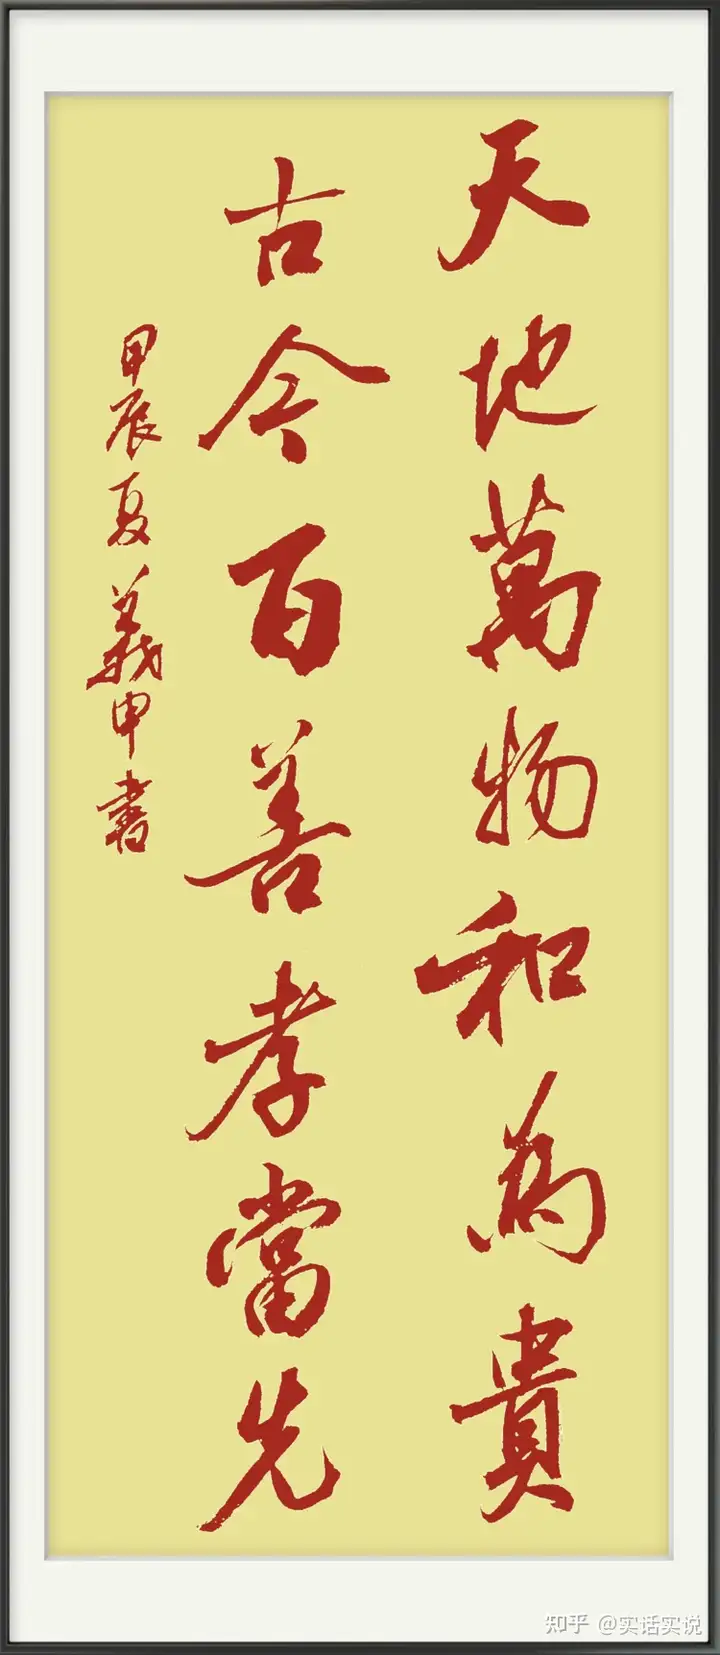 天地萬物和為貴
古今百善孝當先
甲辰夏義申書
知乎 @实话实说